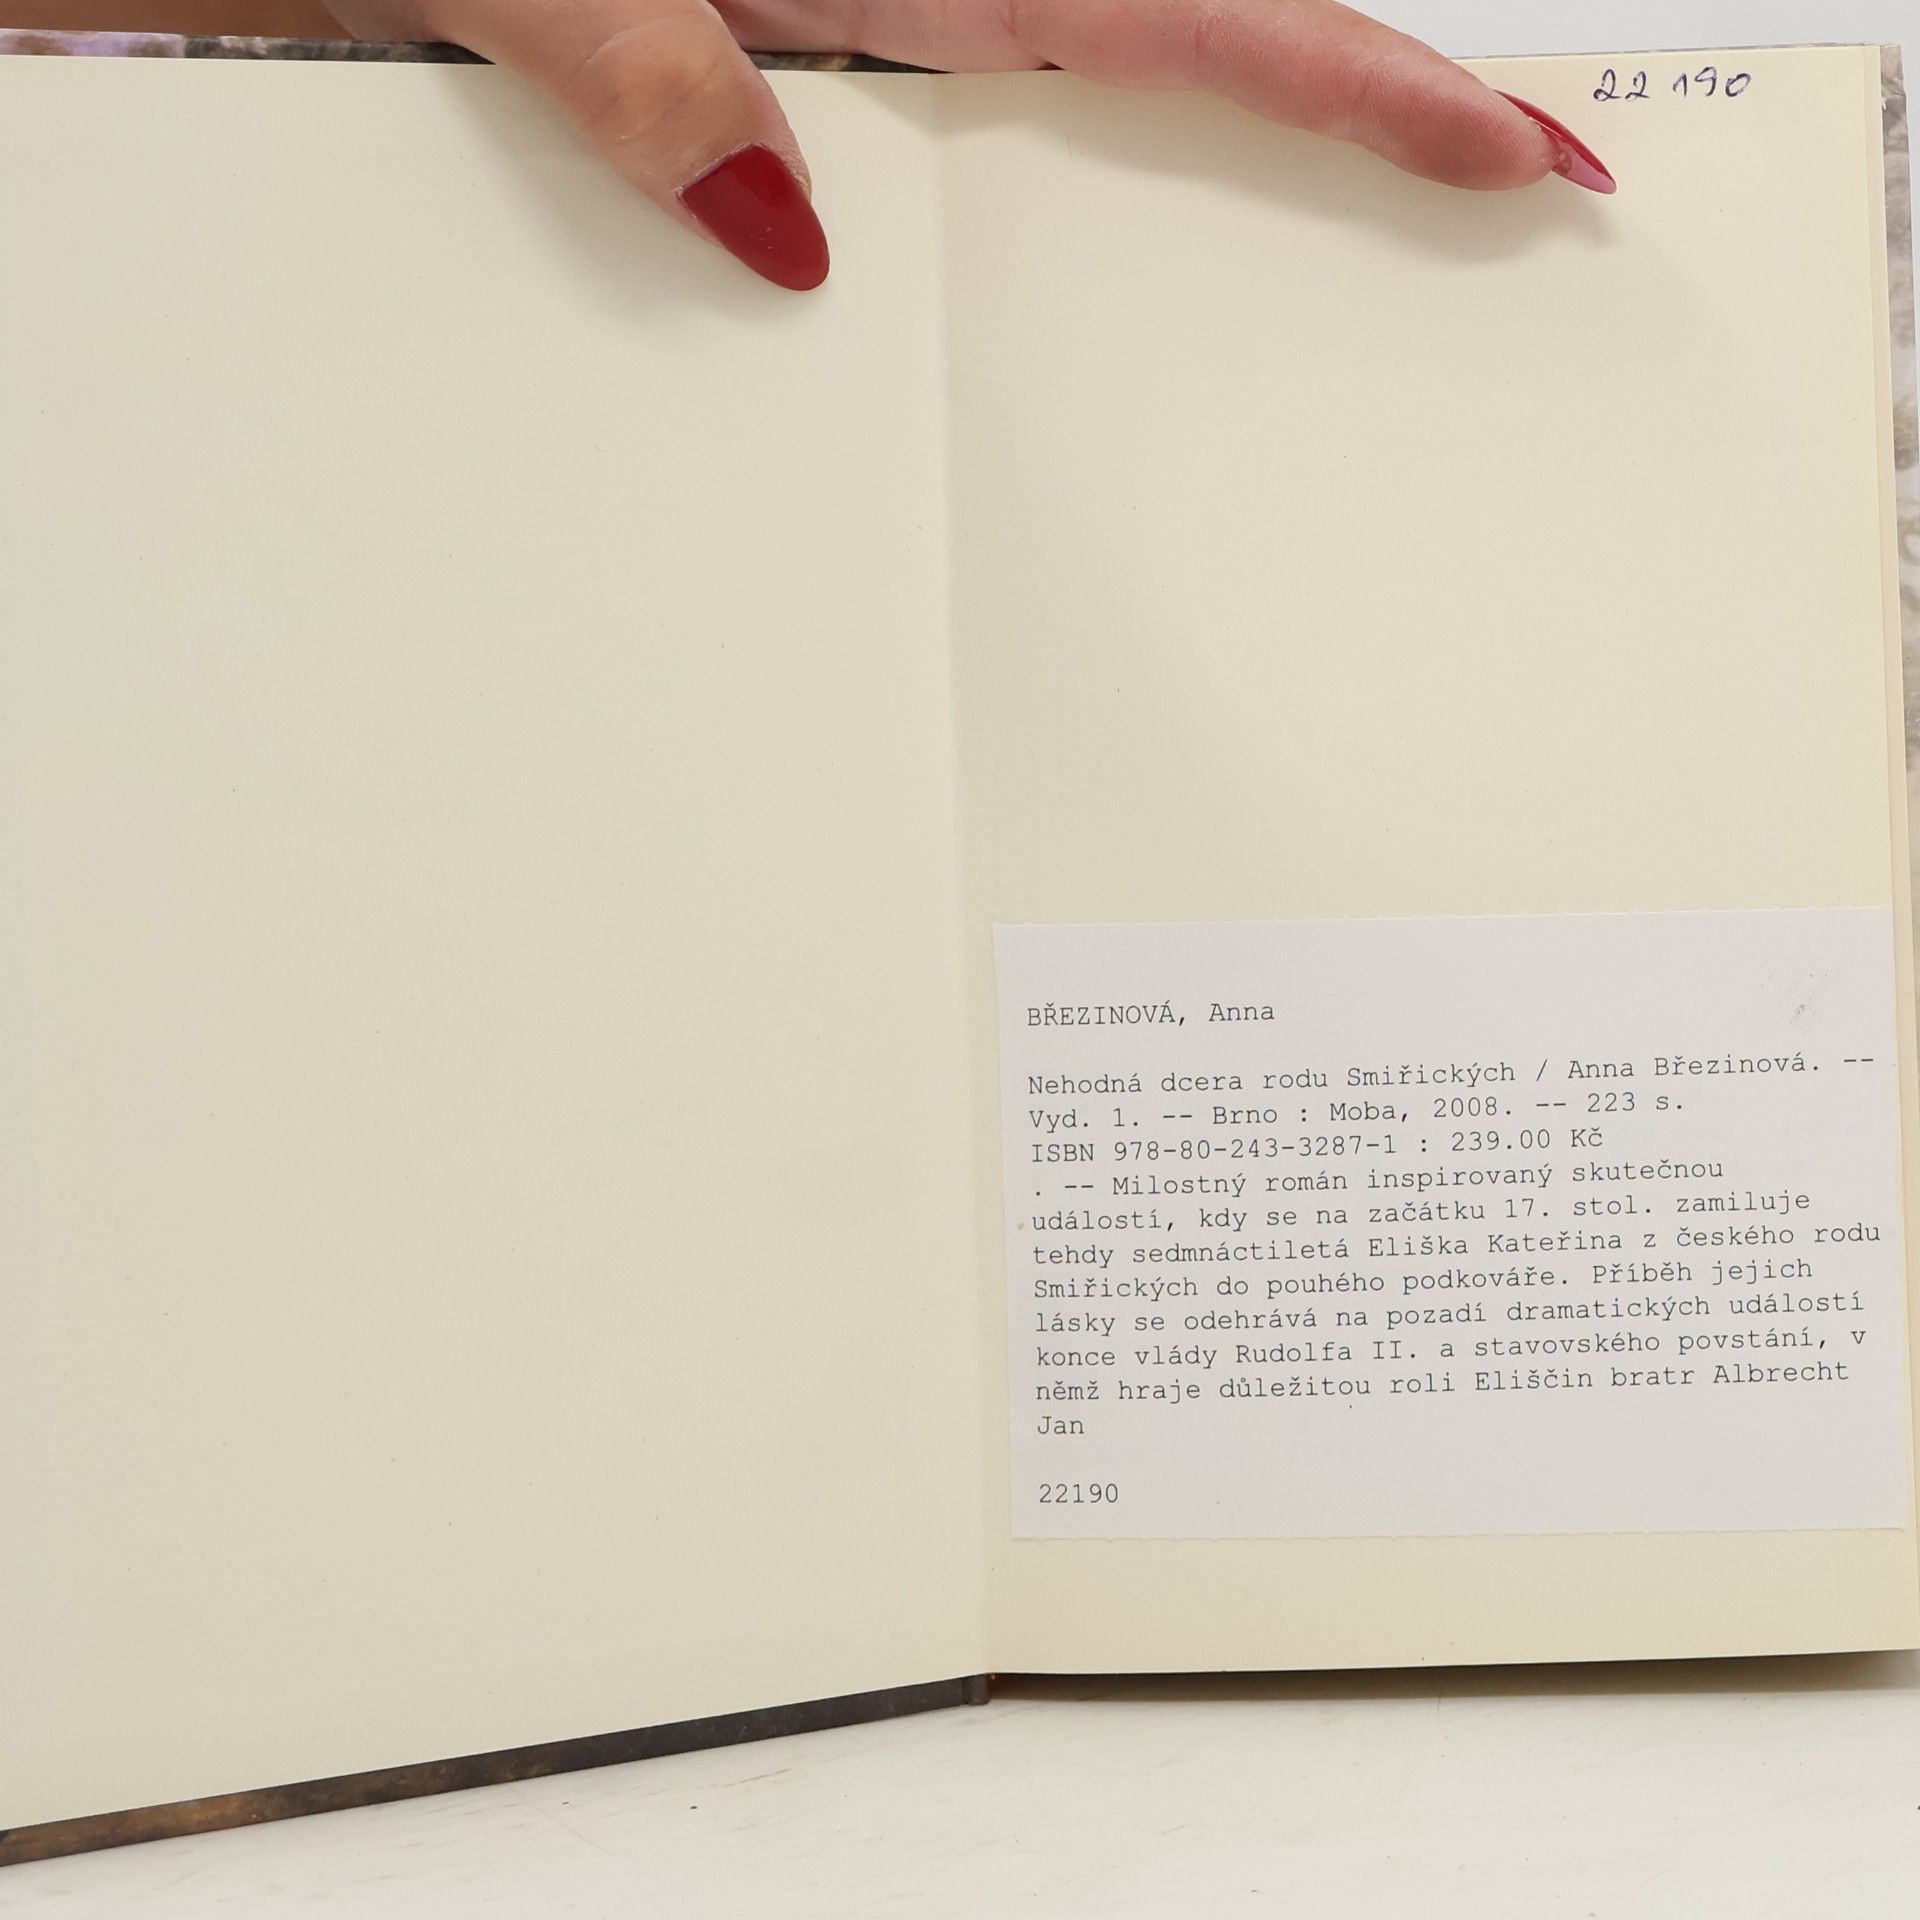 22 190
BŘEZINOVÁ, Anna
Nehodná dcera rodu Smiřických / Anna Březinová. --
Vyd. 1. -- Brno : Moba, 2008. -- 223 s.
ISBN 978-80-243-3287-1 : 239.00 Kč
. -- Milostný román inspirovaný skutečnou
událostí, kdy se na začátku 17. stol. zamiluje
tehdy sedmnáctiletá Eliška Kateřina z českého rodu
Smiřických do pouhého podkováře. Příběh jejich
lásky se odehrává na pozadí dramatických událostí
konce vlády Rudolfa II. a stavovského povstání, v
němž hraje důležitou roli Eliščin bratr Albrecht
Jan
22190